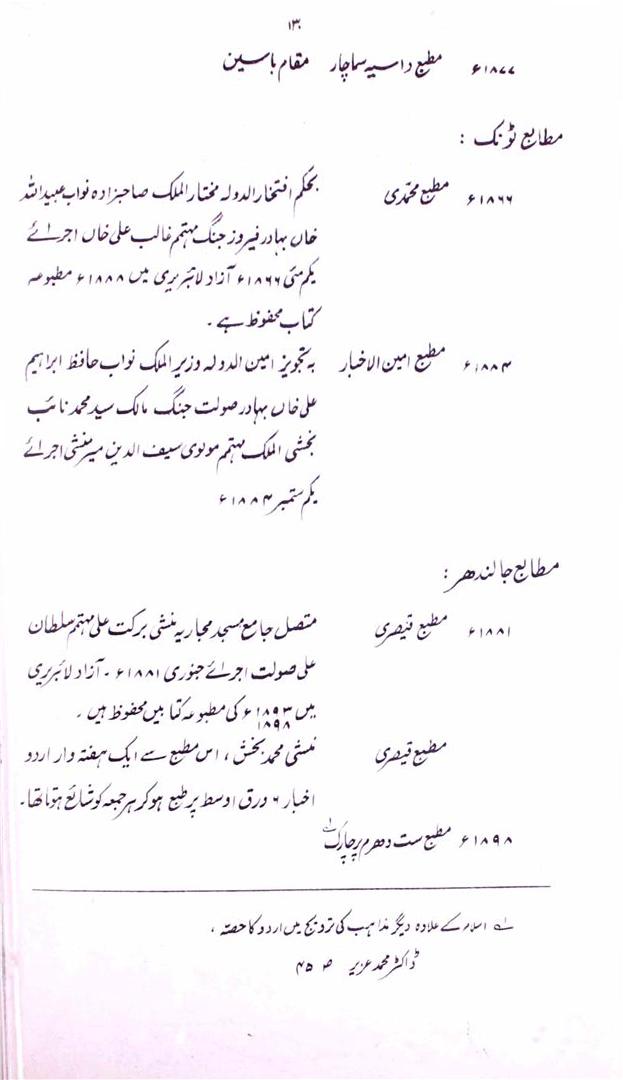 ۱۳۰
۱۸۷۷ء مطبع داسیہ سماچار مقام باسین
مطابع ٹونک :
۱۸۶۶ء مطبع محمدی بحکم افتخار الدولہ مختار الملک صاحبزادہ نواب عبیداللہ
خاں بہادر فیروز جنگ مہتمم غالب علی خاں اجرائے
یکم مئی ۱۸۶۶ء آزاد لائبریری میں ۱۸۸۸ء مطبوعہ
کتاب محفوظ ہے ۔
۱۸۸۴ء مطبع امین الاخبار بہ تجویز امین الدولہ وزیر الملک نواب حافظ ابراہیم
علی خاں بہادر صولت جنگ مالک سید محمد نائب
بخشی الملک مہتمم مولوی سیف الدین میر منشی اجرائے
یکم ستمبر ۱۸۸۴ء
مطابع جالندھر :
۱۸۸۱ء مطبع قیصری متصل جامع مسجد مجاریہ منشی برکت علی مہتمم سلطان
علی صولت اجرائے جنوری ۱۸۸۱ء ۔ آزاد لائبریری
میں ۱۸۹۳ء کی مطبوعہ کتابیں محفوظ ہیں ۔
۱۸۹۸
مطبع قیصری منشی محمد بخش ، اس مطبع سے ایک ہفتہ وار اردو
اخبار ۶ ورق اوسط پر طبع ہوکر ہر جمعہ کو شائع ہوتا تھا۔
۱۸۹۸ء مطبع ست دھرم پرچارک لے
لے اسلام کے علاوہ دیگر مذاہب کی ترویج میں اردو کا حصہ ،
ڈاکٹر محمد عزیر ص ۴۵